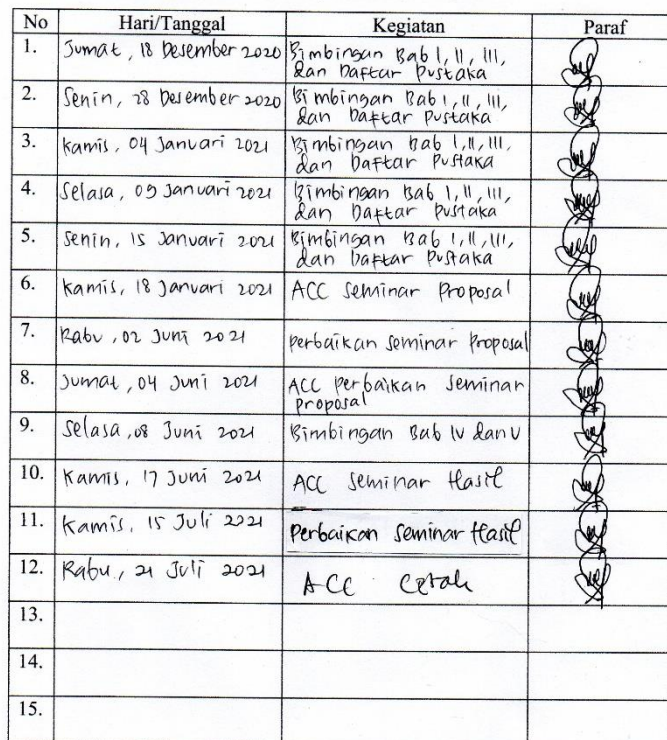 No Hari/Tanggal Kegiatan Paraf
1. Jumat, 18 Desember 2020 Bimbingan Bab I, II, III,
dan Daftar Pustaka
2. Senin, 28 Desember 2020 Bimbingan Bab I, II, III,
dan Daftar Pustaka
3. Kamis, 04 Januari 2021 Bimbingan Bab I, II, III,
dan Daftar Pustaka
4. Selasa, 09 Januari 2021 Bimbingan Bab I, II, III,
dan Daftar Pustaka
5. Senin, 15 Januari 2021 Bimbingan Bab I, II, III,
dan Daftar Pustaka
6. Kamis, 18 Januari 2021 ACC Seminar Proposal
7. Rabu, 02 Juni 2021 Perbaikan Seminar Proposal
8. Jumat, 04 Juni 2021 ACC Perbaikan Seminar
Proposal
9. Selasa, 08 Juni 2021 Bimbingan Bab IV dan V
10. Kamis, 17 Juni 2021 ACC Seminar Hasil
11. Kamis, 15 Juli 2021 Perbaikan Seminar Hasil
12. Rabu, 21 Juli 2021 ACC Cetak
13.
14.
15.